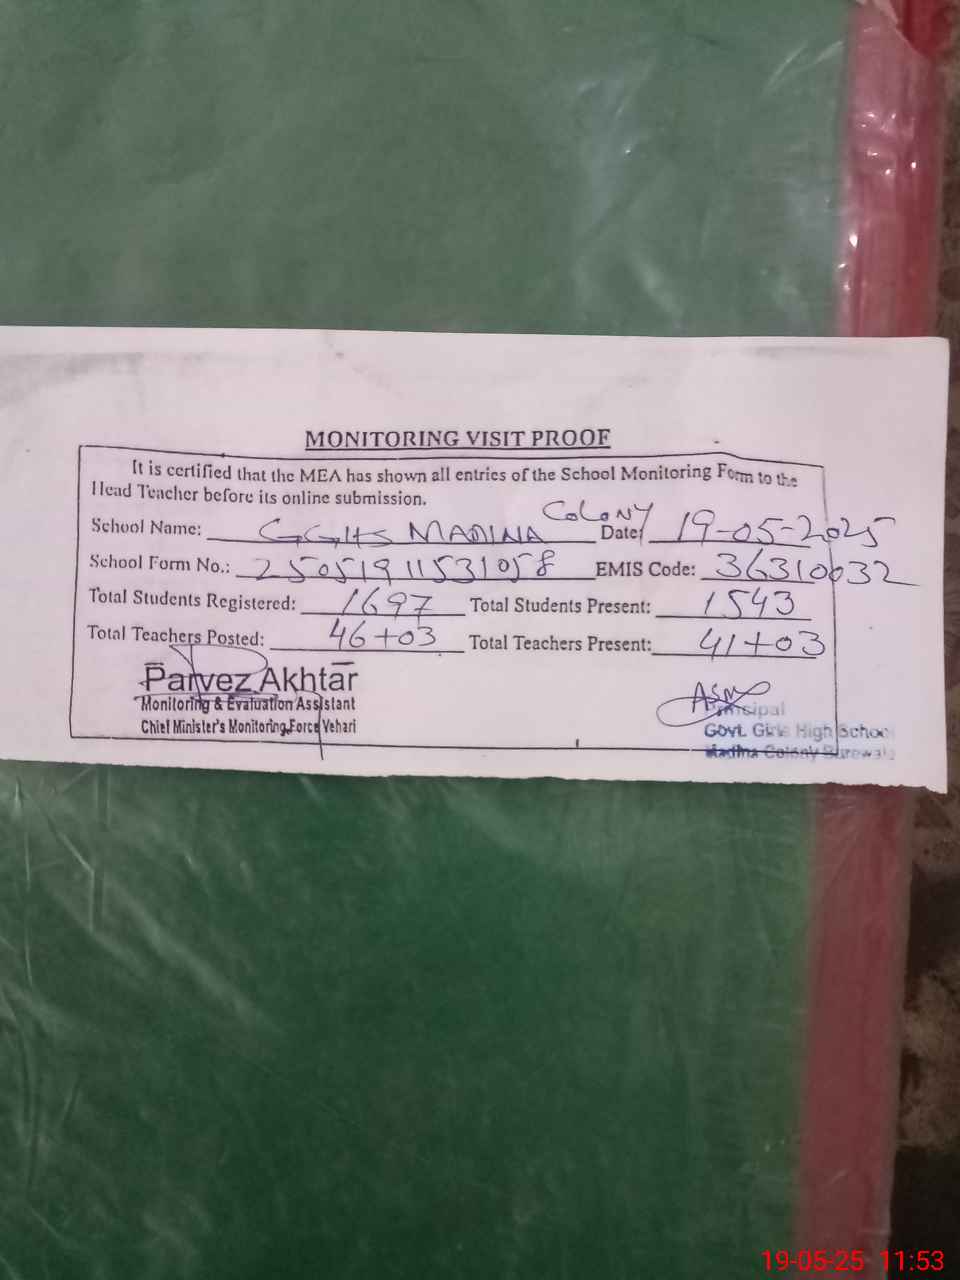 MONITORING VISIT PROOF
It is certified that the MEA has shown all entries of the School Monitoring Form to the
Head Teacher before its online submission.
School Name: GGHS MADINA COLONY Date: 19-05-2025
School Form No.: 25051911531058 EMIS Code: 36310032
Total Students Registered: 1697 Total Students Present: 1543
Total Teachers Posted: 46+03 Total Teachers Present: 41+03
Parvez Akhtar
Monitoring & Evaluation Assistant
Chief Minister's Monitoring Force Vehari
Principal
Govt. Girls High School
Madina Colony Burewala
19-05-25 11:53